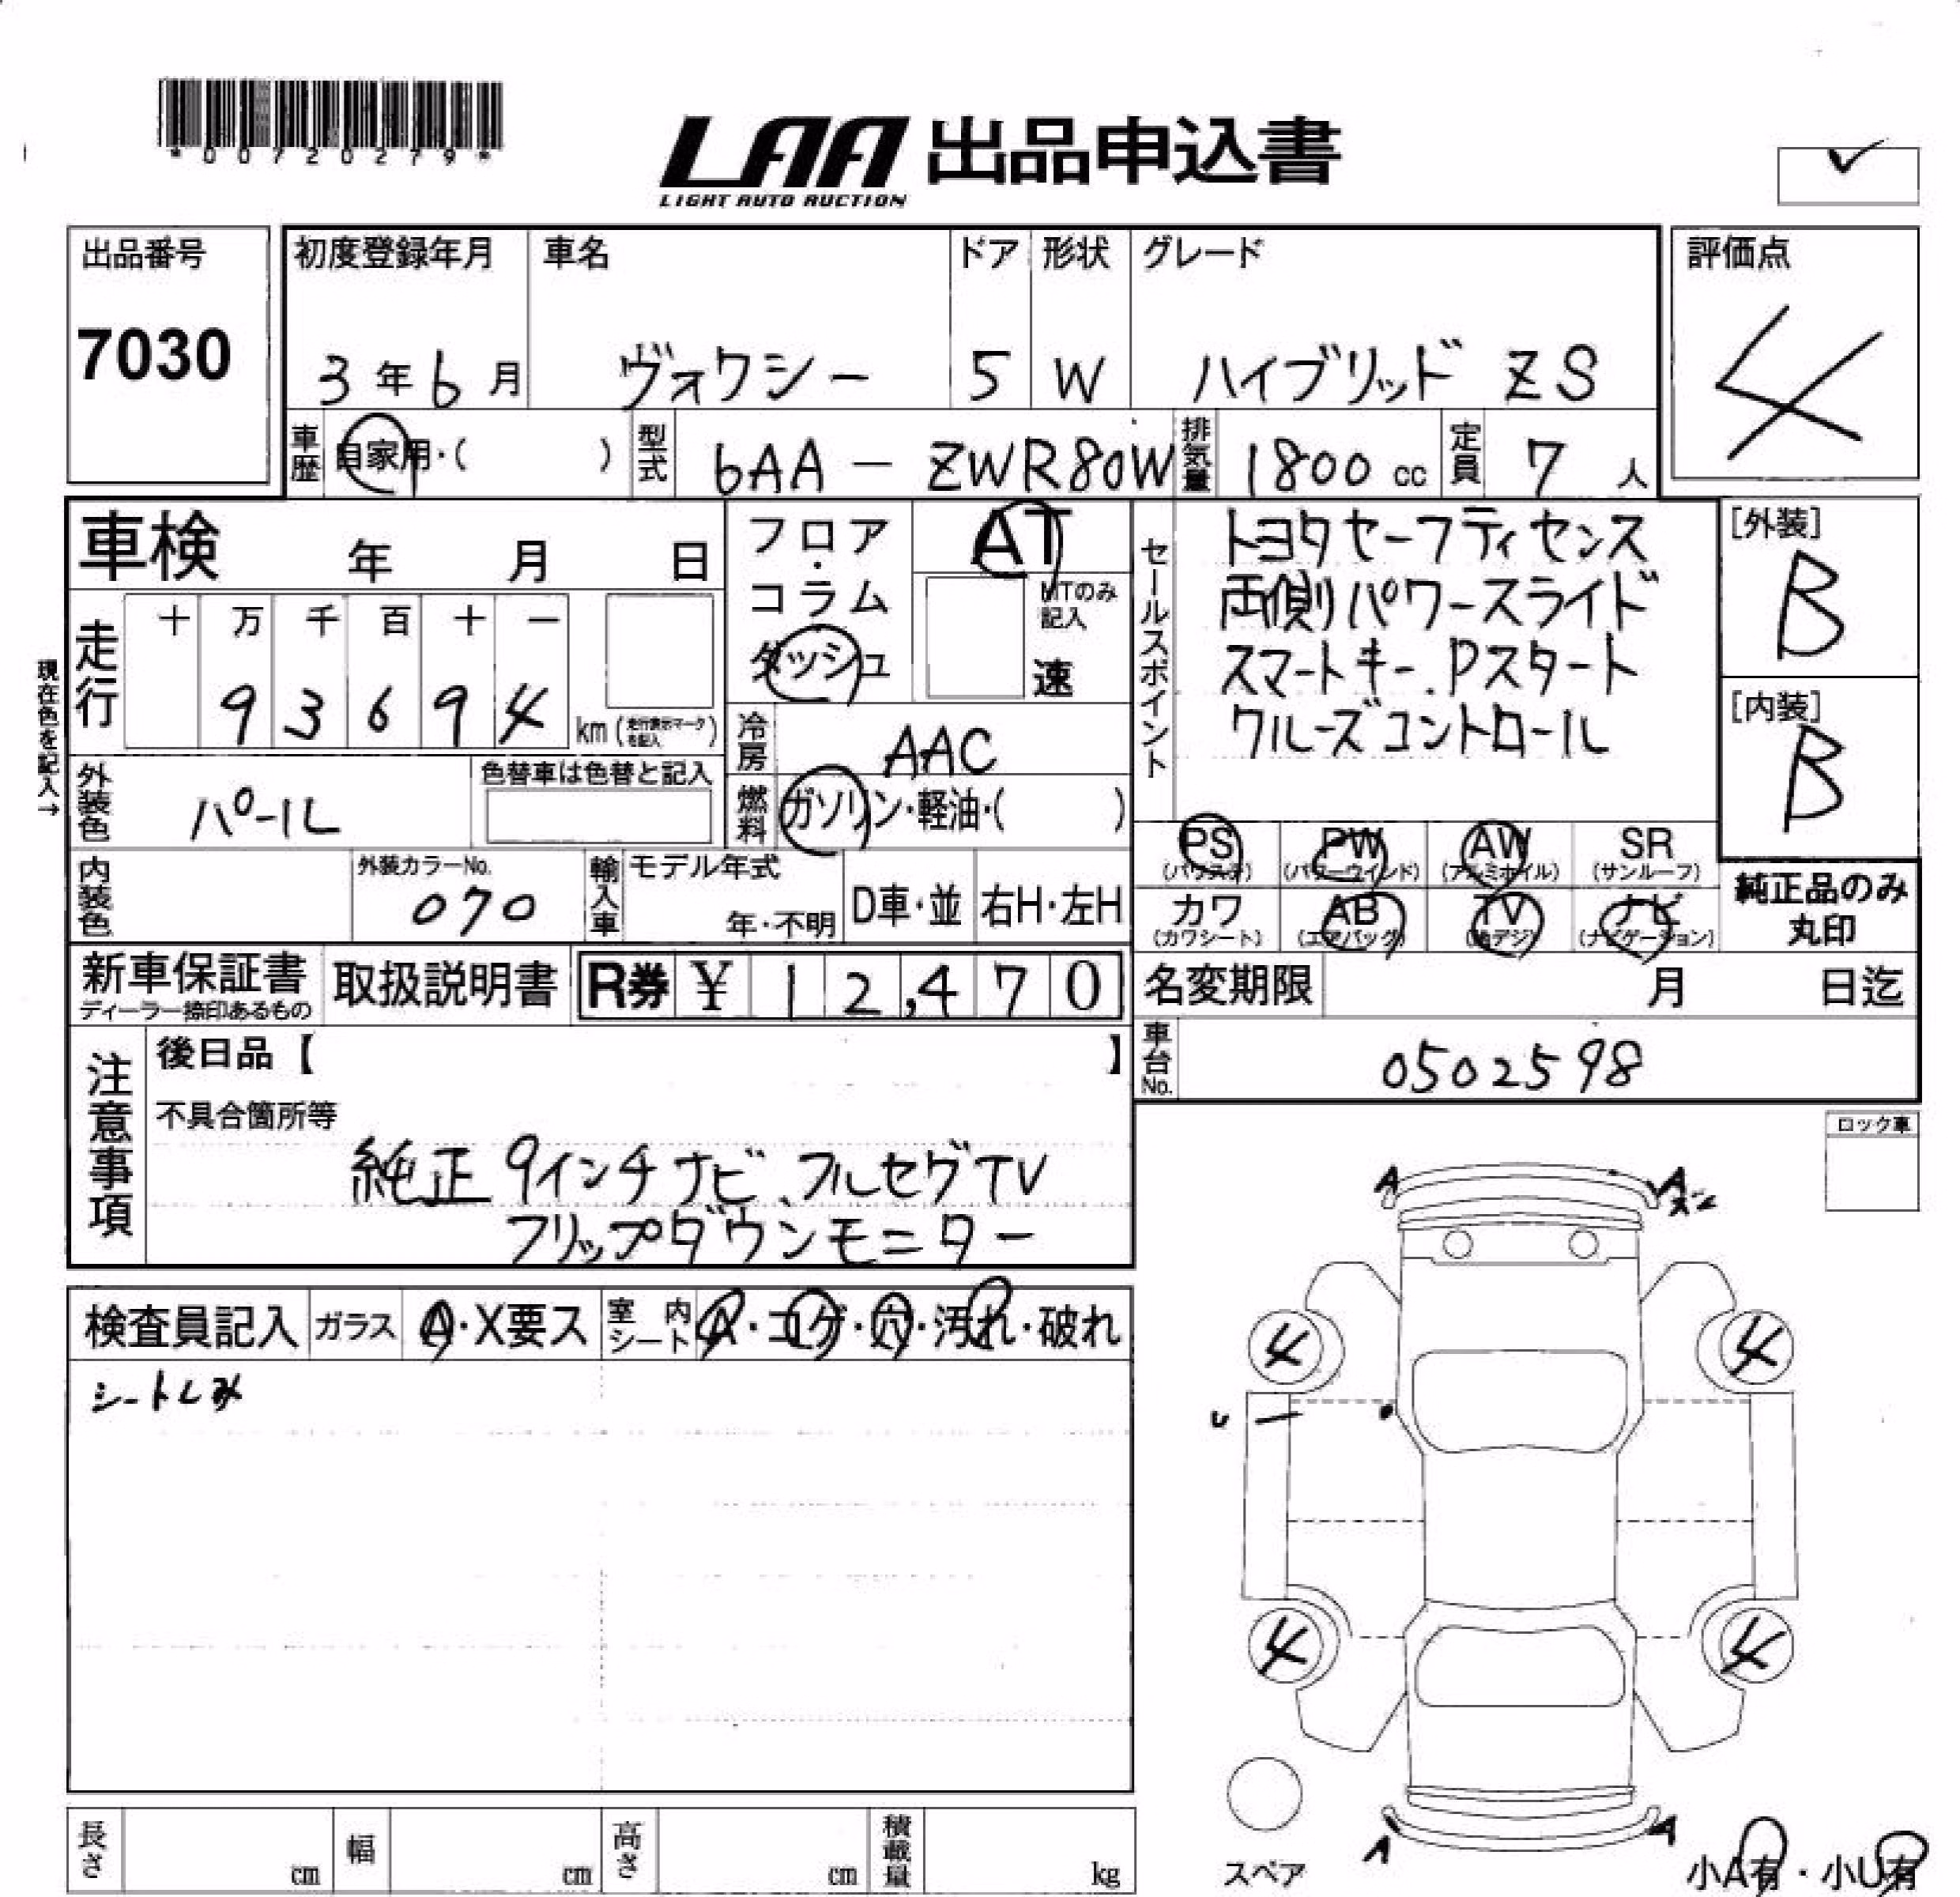 *00720279*
LAA 出品申込書
LIGHT AUTO AUCTION
出品番号
7030
初度登録年月 車名 ドア 形状 グレード
3年6月 ヴォクシー 5 W ハイブリッド ZS
評価点
4
車歴 自家用・( ) 型式 6AA-ZWR80W 排気量 1800cc 定員 7人
車検 年 月 日
フロア・コラム
ダッシュ
AT
MTのみ記入
速
セールスポイント
トヨタセーフティセンス
両側パワースライド
スマートキー.Pスタート
クルーズコントロール
[外装]
B
[内装]
B
現在色を記入→
走行
十 万 千 百 十 一
9 3 6 9 4 km (走行表示マークを記入)
冷房 AAC
燃料 ガソリン・軽油・( )
外装色 パール
色替車は色替と記入
内装色
外装カラーNo.
070
輸入車 モデル年式
年・不明 D車・並 右H・左H
PS PW AW SR
(パワステ) (パワーウインド) (アルミホイル) (サンルーフ)
カワ AB TV ナビ
(カワシート) (エアバッグ) (地デジ) (ナビゲーション)
純正品のみ
丸印
新車保証書
ディーラー捺印あるもの
取扱説明書
R券 ¥ 12,470
名変期限 月 日迄
車台No. 0502598
注意事項
後日品【 】
不具合箇所等
純正 9インチナビ、フルセグTV
フリップダウンモニター
ロック車
検査員記入 ガラス A・X要ス 室内シート A・コゲ・穴・汚れ・破れ
シートしみ
A A
4 4
U
4 4
A A
スペア
小A有・小U有
長さ cm 幅 cm 高さ cm 積載量 kg